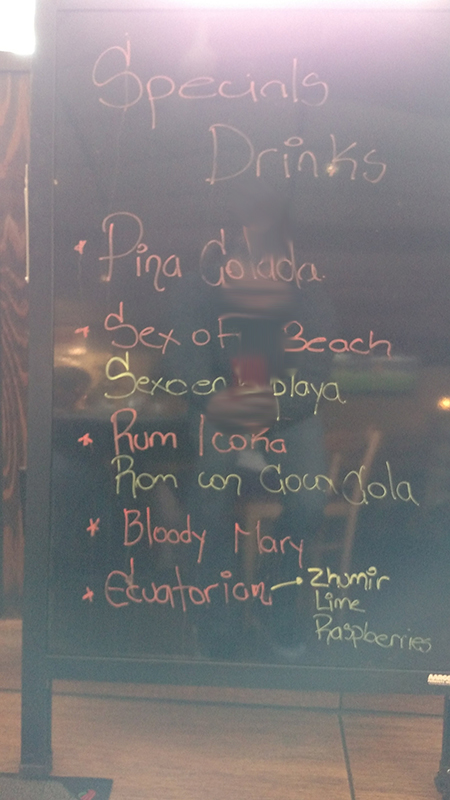 Specials
Drinks
* Pina Colada
* Sex of Beach
Sexo en playa
* Rum / Coka
Ron con Coca Cola
* Bloody Mary
* Ecuatorian → Zhumir
Lime
Raspberries